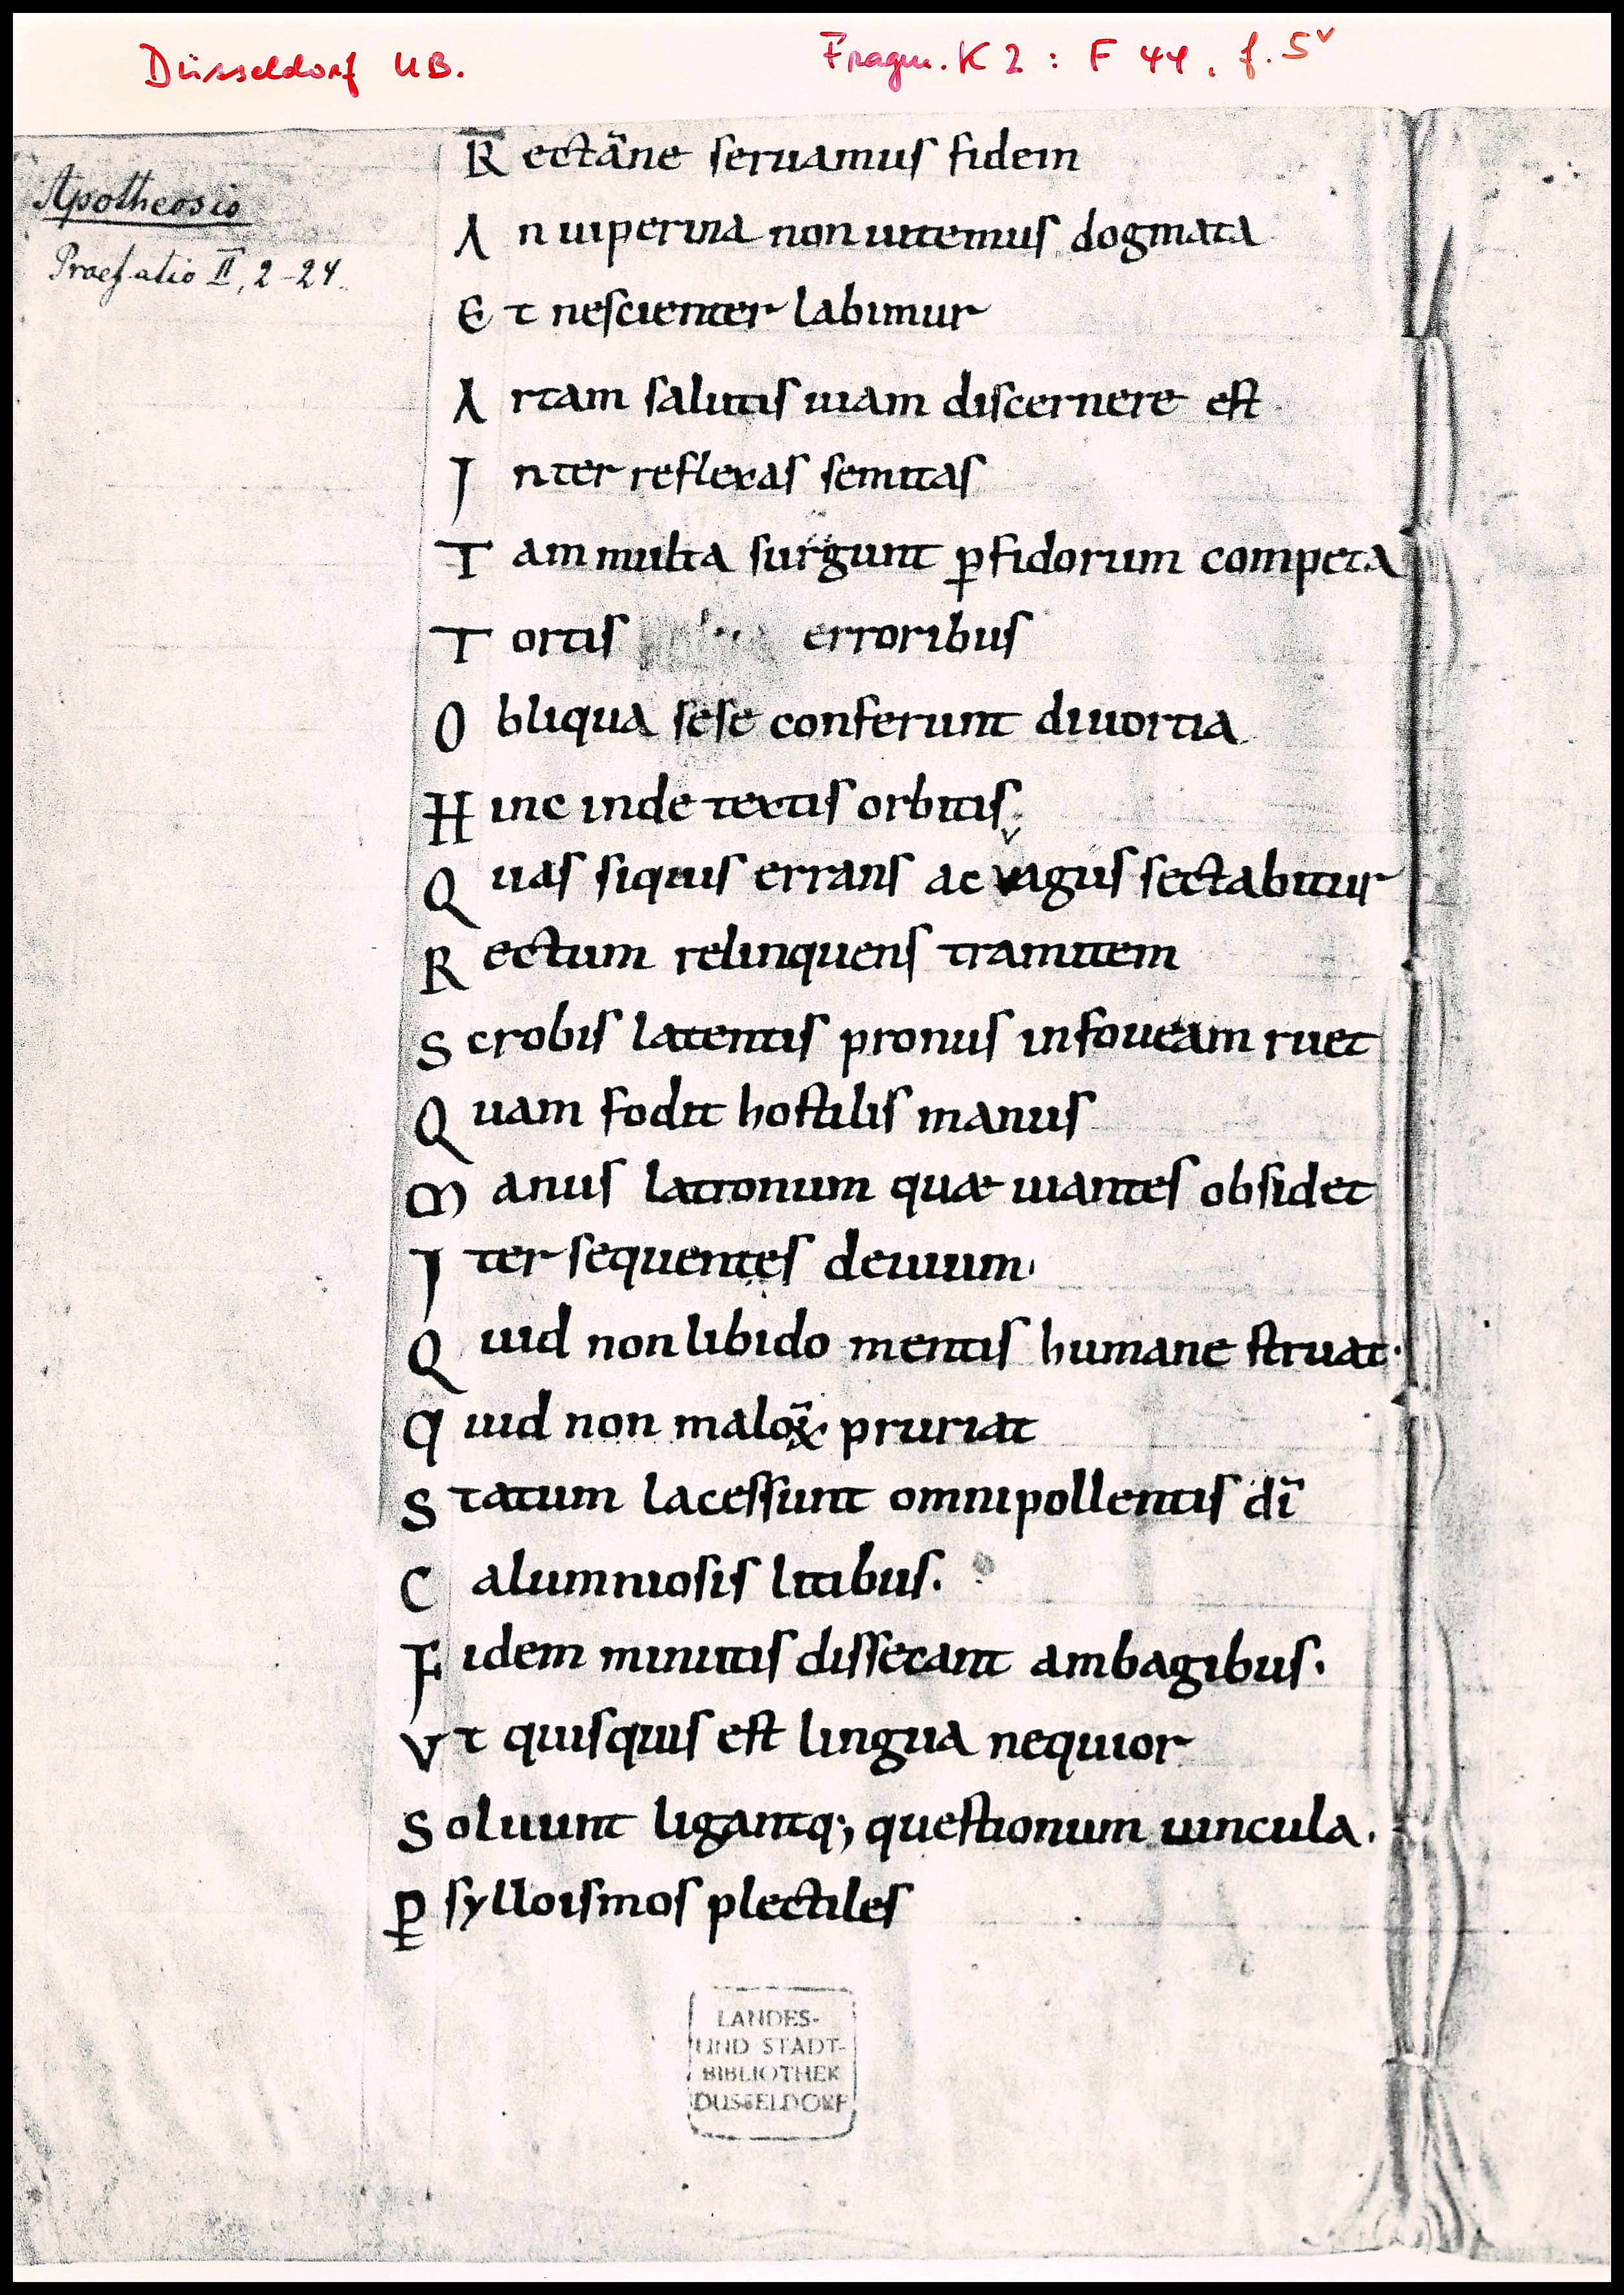 Düsseldorf UB.
Fragm. K 2 : F 44, f. 5v
Apotheosis
Praefatio II, 2-24.
Rectāne seruamus fidem
An uiperina non uitemus dogmata
Et nescienter labimur
Artam salutis uiam discernere est
Inter reflexas semitas
Tam multa surgunt ꝑfidorum competa
Tortis erroribus
Obliqua sese conferunt diuortia
Hinc inde textis orbitis.
Quas siquis errans ac vagus sectabitur
Rectum relinquens tramitem
Scrobis latentis pronus in foueam ruet
Quam fodit hostilis manus
Manus latronum quae uiantes obsidet
Iter sequentes deuium
Quid non libido mentis humane struat.
Quid non maloꝝ pruriat
Statum lacessunt omnipollentis dī
Calumniosis litibus.
Fidem minutis dissecant ambagibus.
Vt quisquis est lingua nequior
Soluunt ligantq; questionum uincula.
Ꝑ sylloismos plectiles
LANDES-
UND STADT-
BIBLIOTHEK
DUSSELDORF